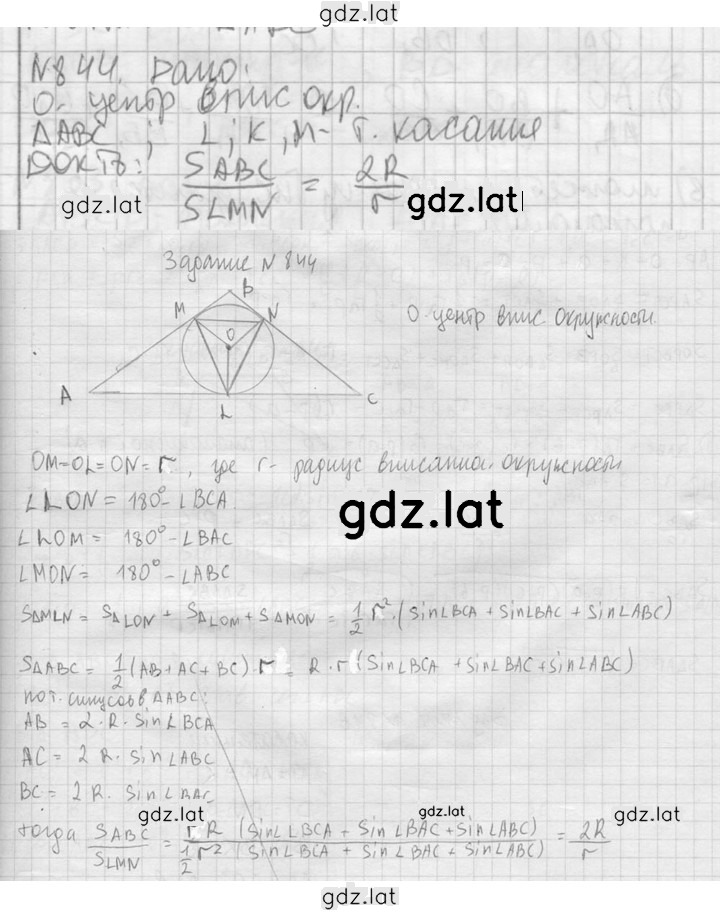 gdz.lat
N844. Дано:
O- центр впис окр.
ΔABC ; L; K, M- т. касания
Док-ть: SABC/SLMN = 2R/r
gdz.lat gdz.lat
Задание N 844
B
M N
O
A L C
O центр впис. окружности.
OM=OL=ON=r, где r- радиус вписанной окружности
∠LON = 180°-∠BCA.
gdz.lat
∠LOM = 180°-∠BAC
∠MON = 180°-∠ABC
SΔMLN = SΔLON + SΔLOM + SΔMON = 1/2 r²·(sin∠BCA + sin∠BAC + sin∠ABC)
SΔABC = 1/2 (AB+AC+BC)·r = R·r (sin∠BCA + sin∠BAC + sin∠ABC)
по т. синусов в ΔABC:
AB = 2·R·sin∠BCA
AC = 2R·sin∠ABC
BC = 2R·sin∠BAC
gdz.lat gdz.lat gdz.lat
тогда SABC/SLMN = r R (sin∠BCA + sin∠BAC + sin∠ABC) / 1/2 r² (sin∠BCA + sin∠BAC + sin∠ABC) = 2R/r
gdz.lat